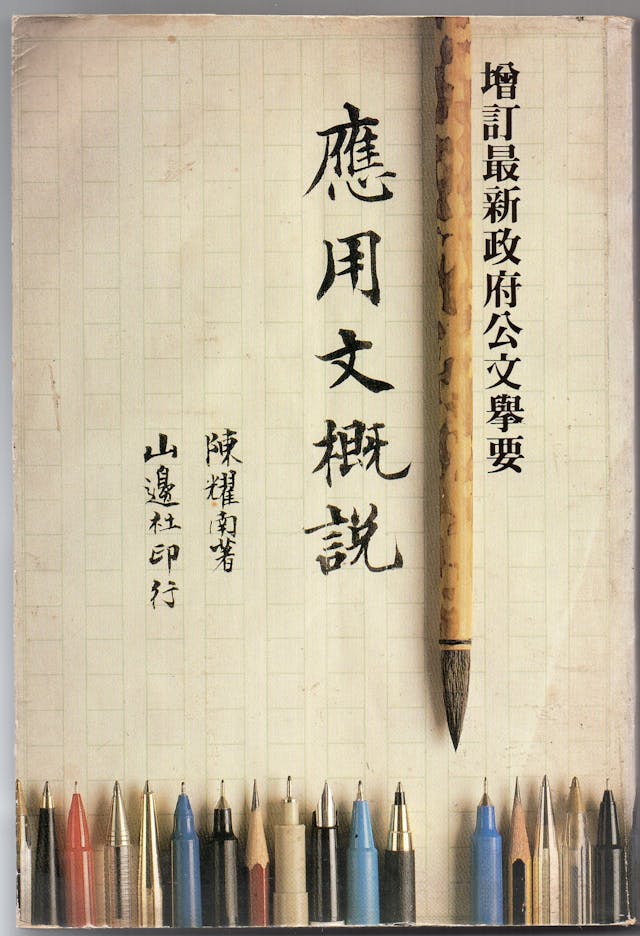 增訂最新政府公文舉要
應用文概説
陳耀南著
山邊社印行